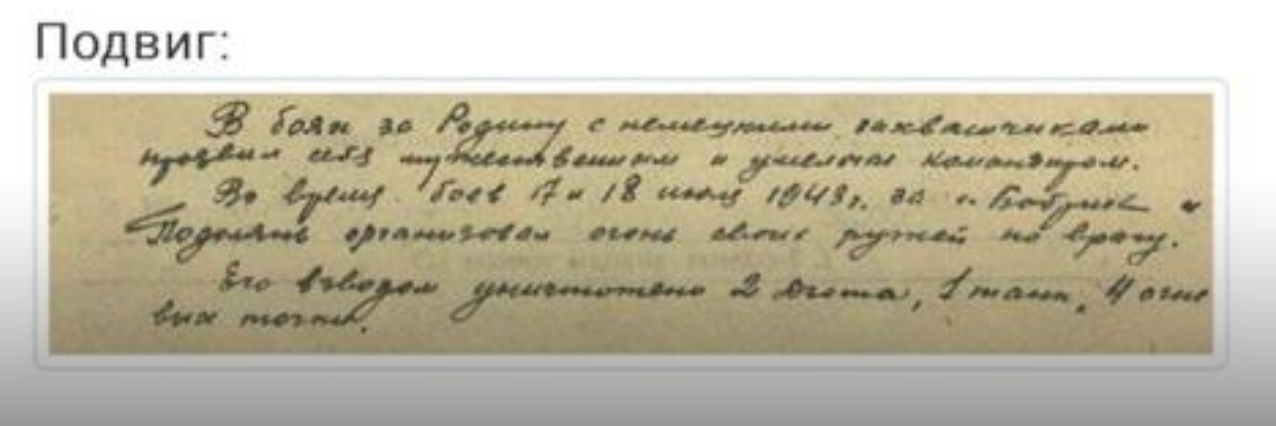 Подвиг:
В боях за Родину с немецкими захватчиками
проявил себя мужественным и умелым командиром.
Во время боев 17 и 18 июля 1943г. за с. Бобрик и
Подолянь организовал огонь своих ружей по врагу.
Его взводом уничтожено 2 дзота, 1 танк, 4 огне
вых точки.